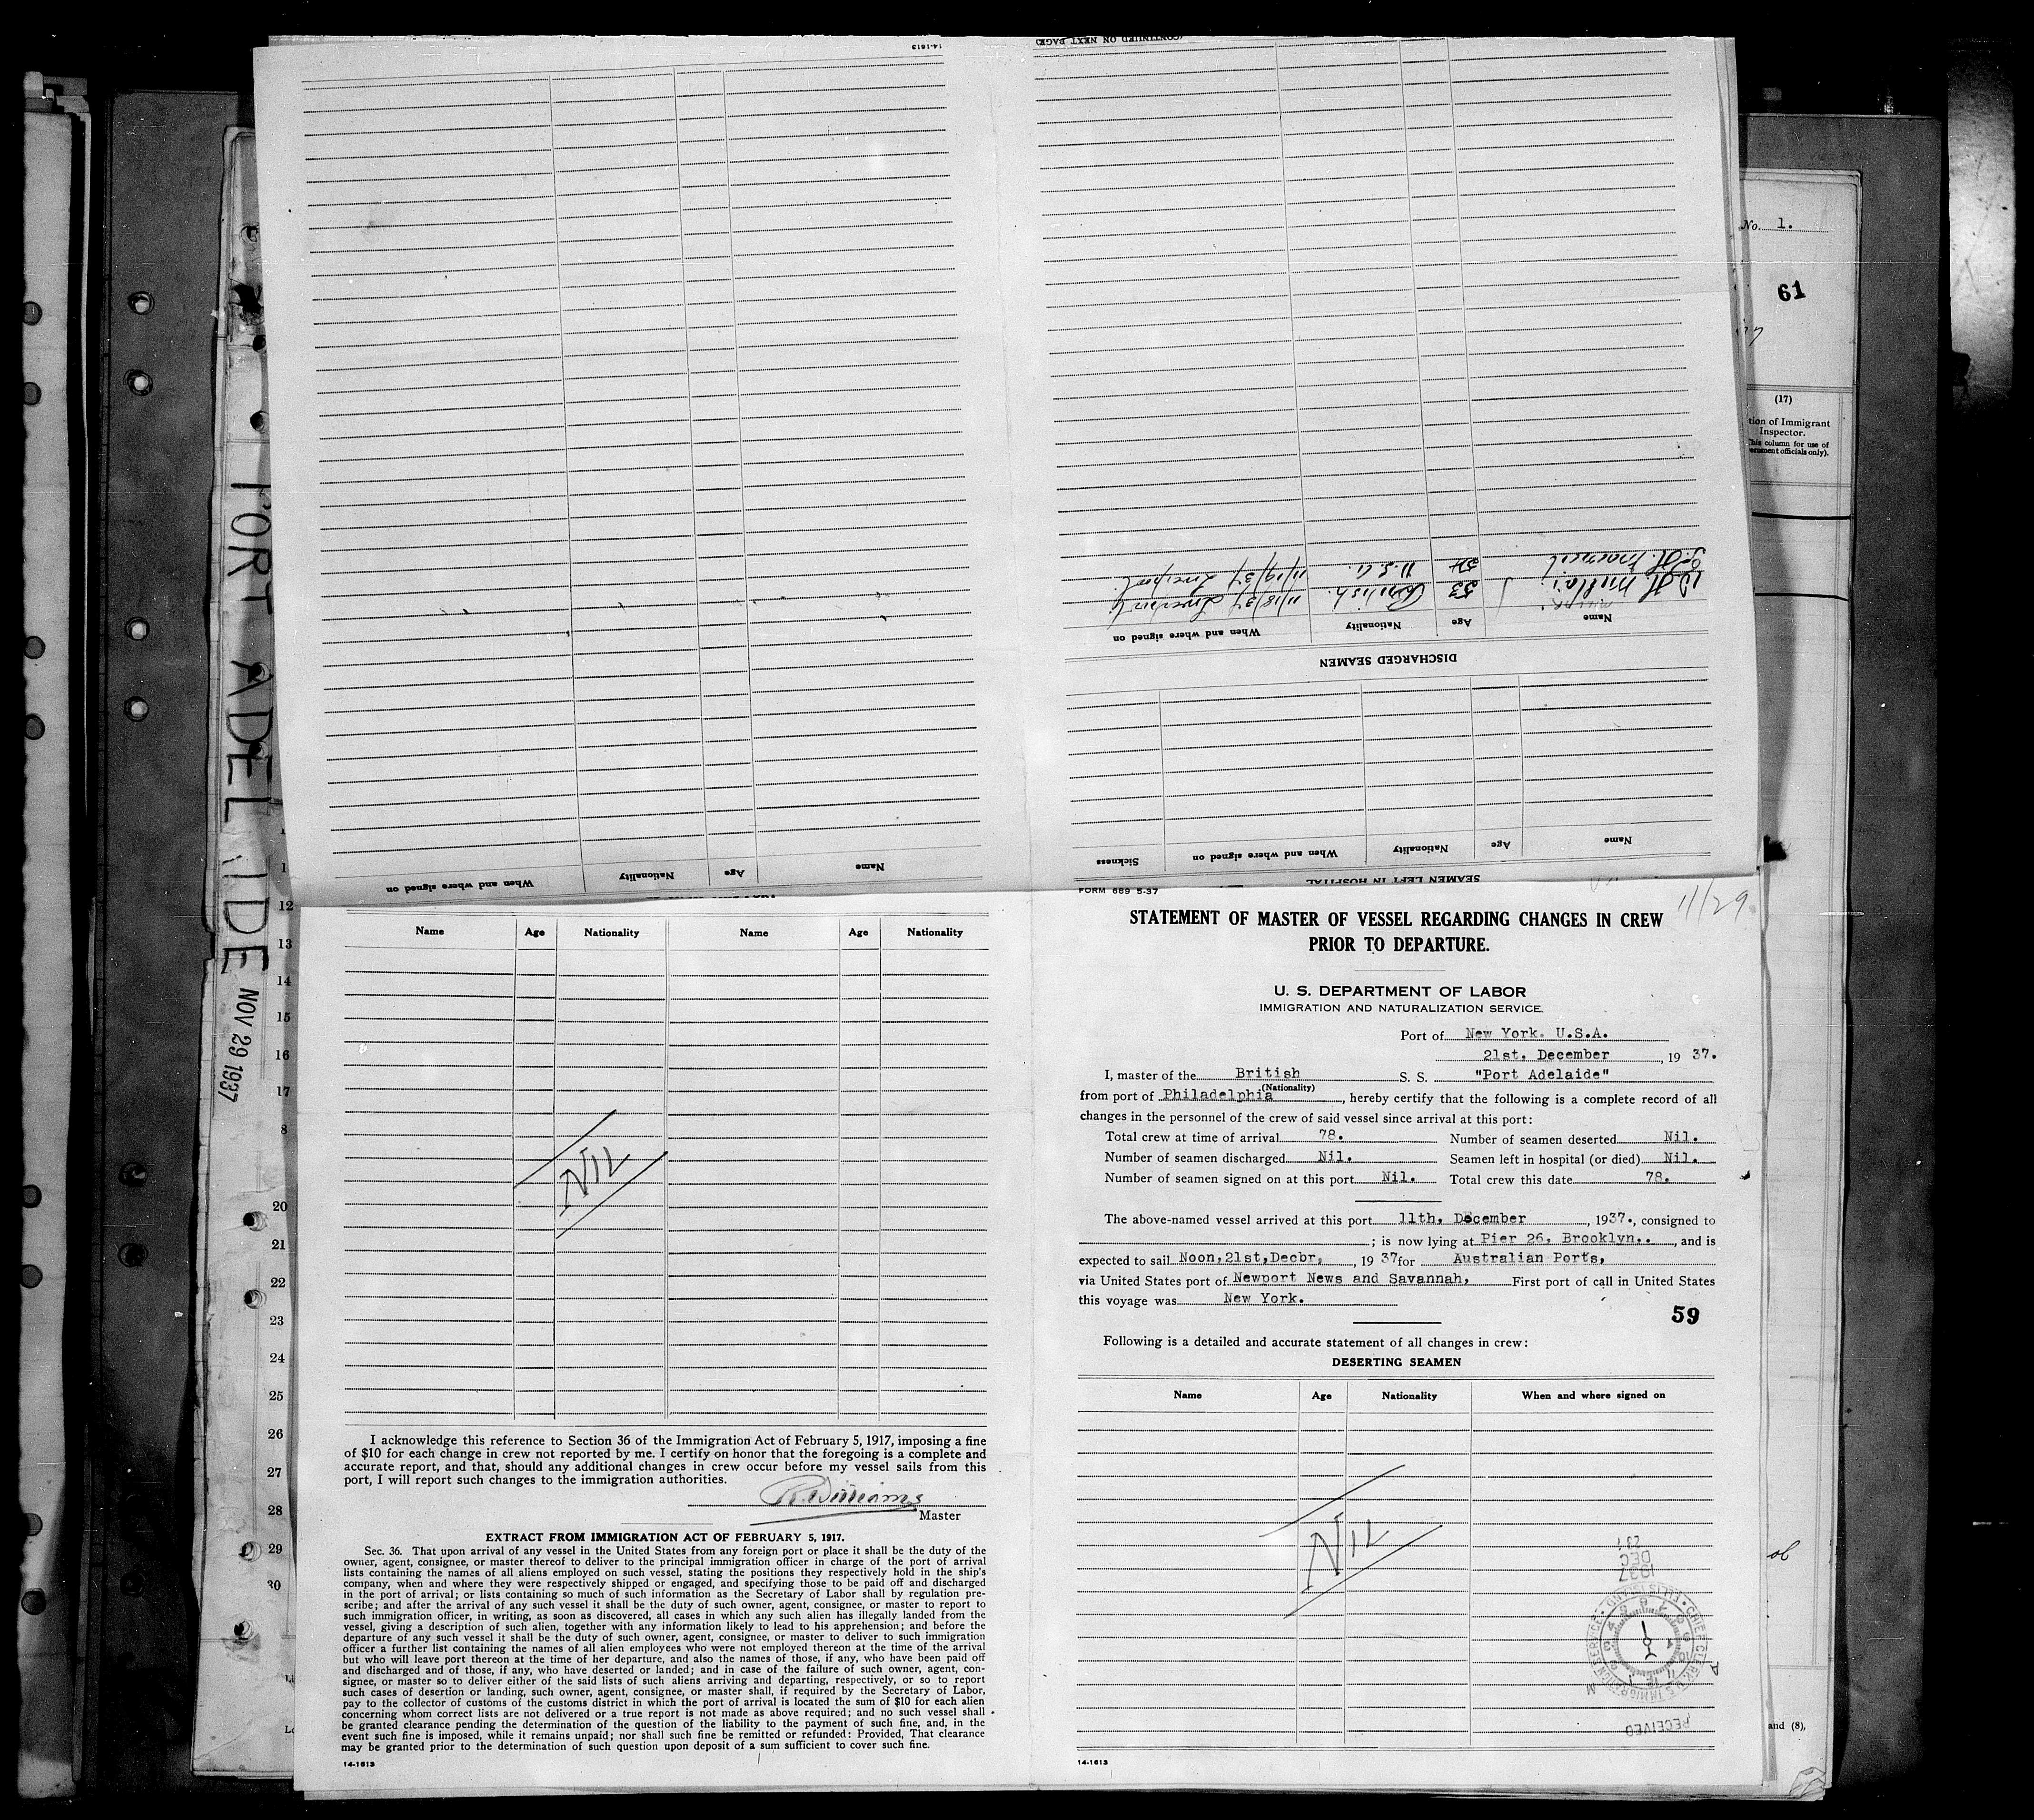 14-1613
(CONTINUED ON NEXT PAGE)
No. 1.
61
(17)
tion of Immigrant
Inspector.
This column for use of
ernment officials only).
PORT ADELAIDE NOV 29 1937
J. H.
U.S.A.
11/19/37 Liverpool.
33
British.
11/18/37 Liverpool
Name
Age
Nationality
When and where signed on
DISCHARGED SEAMEN
Name
Age
Nationality
When and where signed on
Sickness
SEAMEN LEFT IN HOSPITAL
Name
Age
Nationality
When and where signed on
12
13
14
15
16
17
8
20
21
22
23
24
25
26
27
28
29
30
Name Age Nationality Name Age Nationality
NIL
I acknowledge this reference to Section 36 of the Immigration Act of February 5, 1917, imposing a fine
of $10 for each change in crew not reported by me. I certify on honor that the foregoing is a complete and
accurate report, and that, should any additional changes in crew occur before my vessel sails from this
port, I will report such changes to the immigration authorities.
R. Williams
Master
EXTRACT FROM IMMIGRATION ACT OF FEBRUARY 5, 1917.
Sec. 36. That upon arrival of any vessel in the United States from any foreign port or place it shall be the duty of the
owner, agent, consignee, or master thereof to deliver to the principal immigration officer in charge of the port of arrival
lists containing the names of all aliens employed on such vessel, stating the positions they respectively hold in the ship's
company, when and where they were respectively shipped or engaged, and specifying those to be paid off and discharged
in the port of arrival; or lists containing so much of such information as the Secretary of Labor shall by regulation pre-
scribe; and after the arrival of any such vessel it shall be the duty of such owner, agent, consignee, or master to report to
such immigration officer, in writing, as soon as discovered, all cases in which any such alien has illegally landed from the
vessel, giving a description of such alien, together with any information likely to lead to his apprehension; and before the
departure of any such vessel it shall be the duty of such owner, agent, consignee, or master to deliver to such immigration
officer a further list containing the names of all alien employees who were not employed thereon at the time of the arrival
but who will leave port thereon at the time of her departure, and also the names of those, if any, who have been paid off
and discharged and of those, if any, who have deserted or landed; and in case of the failure of such owner, agent, con-
signee, or master so to deliver either of the said lists of such aliens arriving and departing, respectively, or so to report
such cases of desertion or landing, such owner, agent, consignee, or master shall, if required by the Secretary of Labor,
pay to the collector of customs of the customs district in which the port of arrival is located the sum of $10 for each alien
concerning whom correct lists are not delivered or a true report is not made as above required; and no such vessel shall
be granted clearance pending the determination of the question of the liability to the payment of such fine, and, in the
event such fine is imposed, while it remains unpaid; nor shall such fine be remitted or refunded: Provided, That clearance
may be granted prior to the determination of such question upon deposit of a sum sufficient to cover such fine.
14-1613
FORM 689 5-37
11/29
STATEMENT OF MASTER OF VESSEL REGARDING CHANGES IN CREW
PRIOR TO DEPARTURE.
U. S. DEPARTMENT OF LABOR
IMMIGRATION AND NATURALIZATION SERVICE
Port of New York. U.S.A.
21st. December, 1937.
I, master of the British S. S. "Port Adelaide"
(Nationality)
from port of Philadelphia, hereby certify that the following is a complete record of all
changes in the personnel of the crew of said vessel since arrival at this port:
Total crew at time of arrival 78. Number of seamen deserted Nil.
Number of seamen discharged Nil. Seamen left in hospital (or died) Nil.
Number of seamen signed on at this port Nil. Total crew this date 78.
The above-named vessel arrived at this port 11th, December, 1937., consigned to
; is now lying at Pier 26, Brooklyn.., and is
expected to sail Noon,21st,Decbr, , 1937 for Australian Ports,
via United States port of Newport News and Savannah, First port of call in United States
this voyage was New York.
59
Following is a detailed and accurate statement of all changes in crew:
DESERTING SEAMEN
Name Age Nationality When and where signed on
NIL
1937
DEC
RECEIVED
14-1613
ob
and (8),